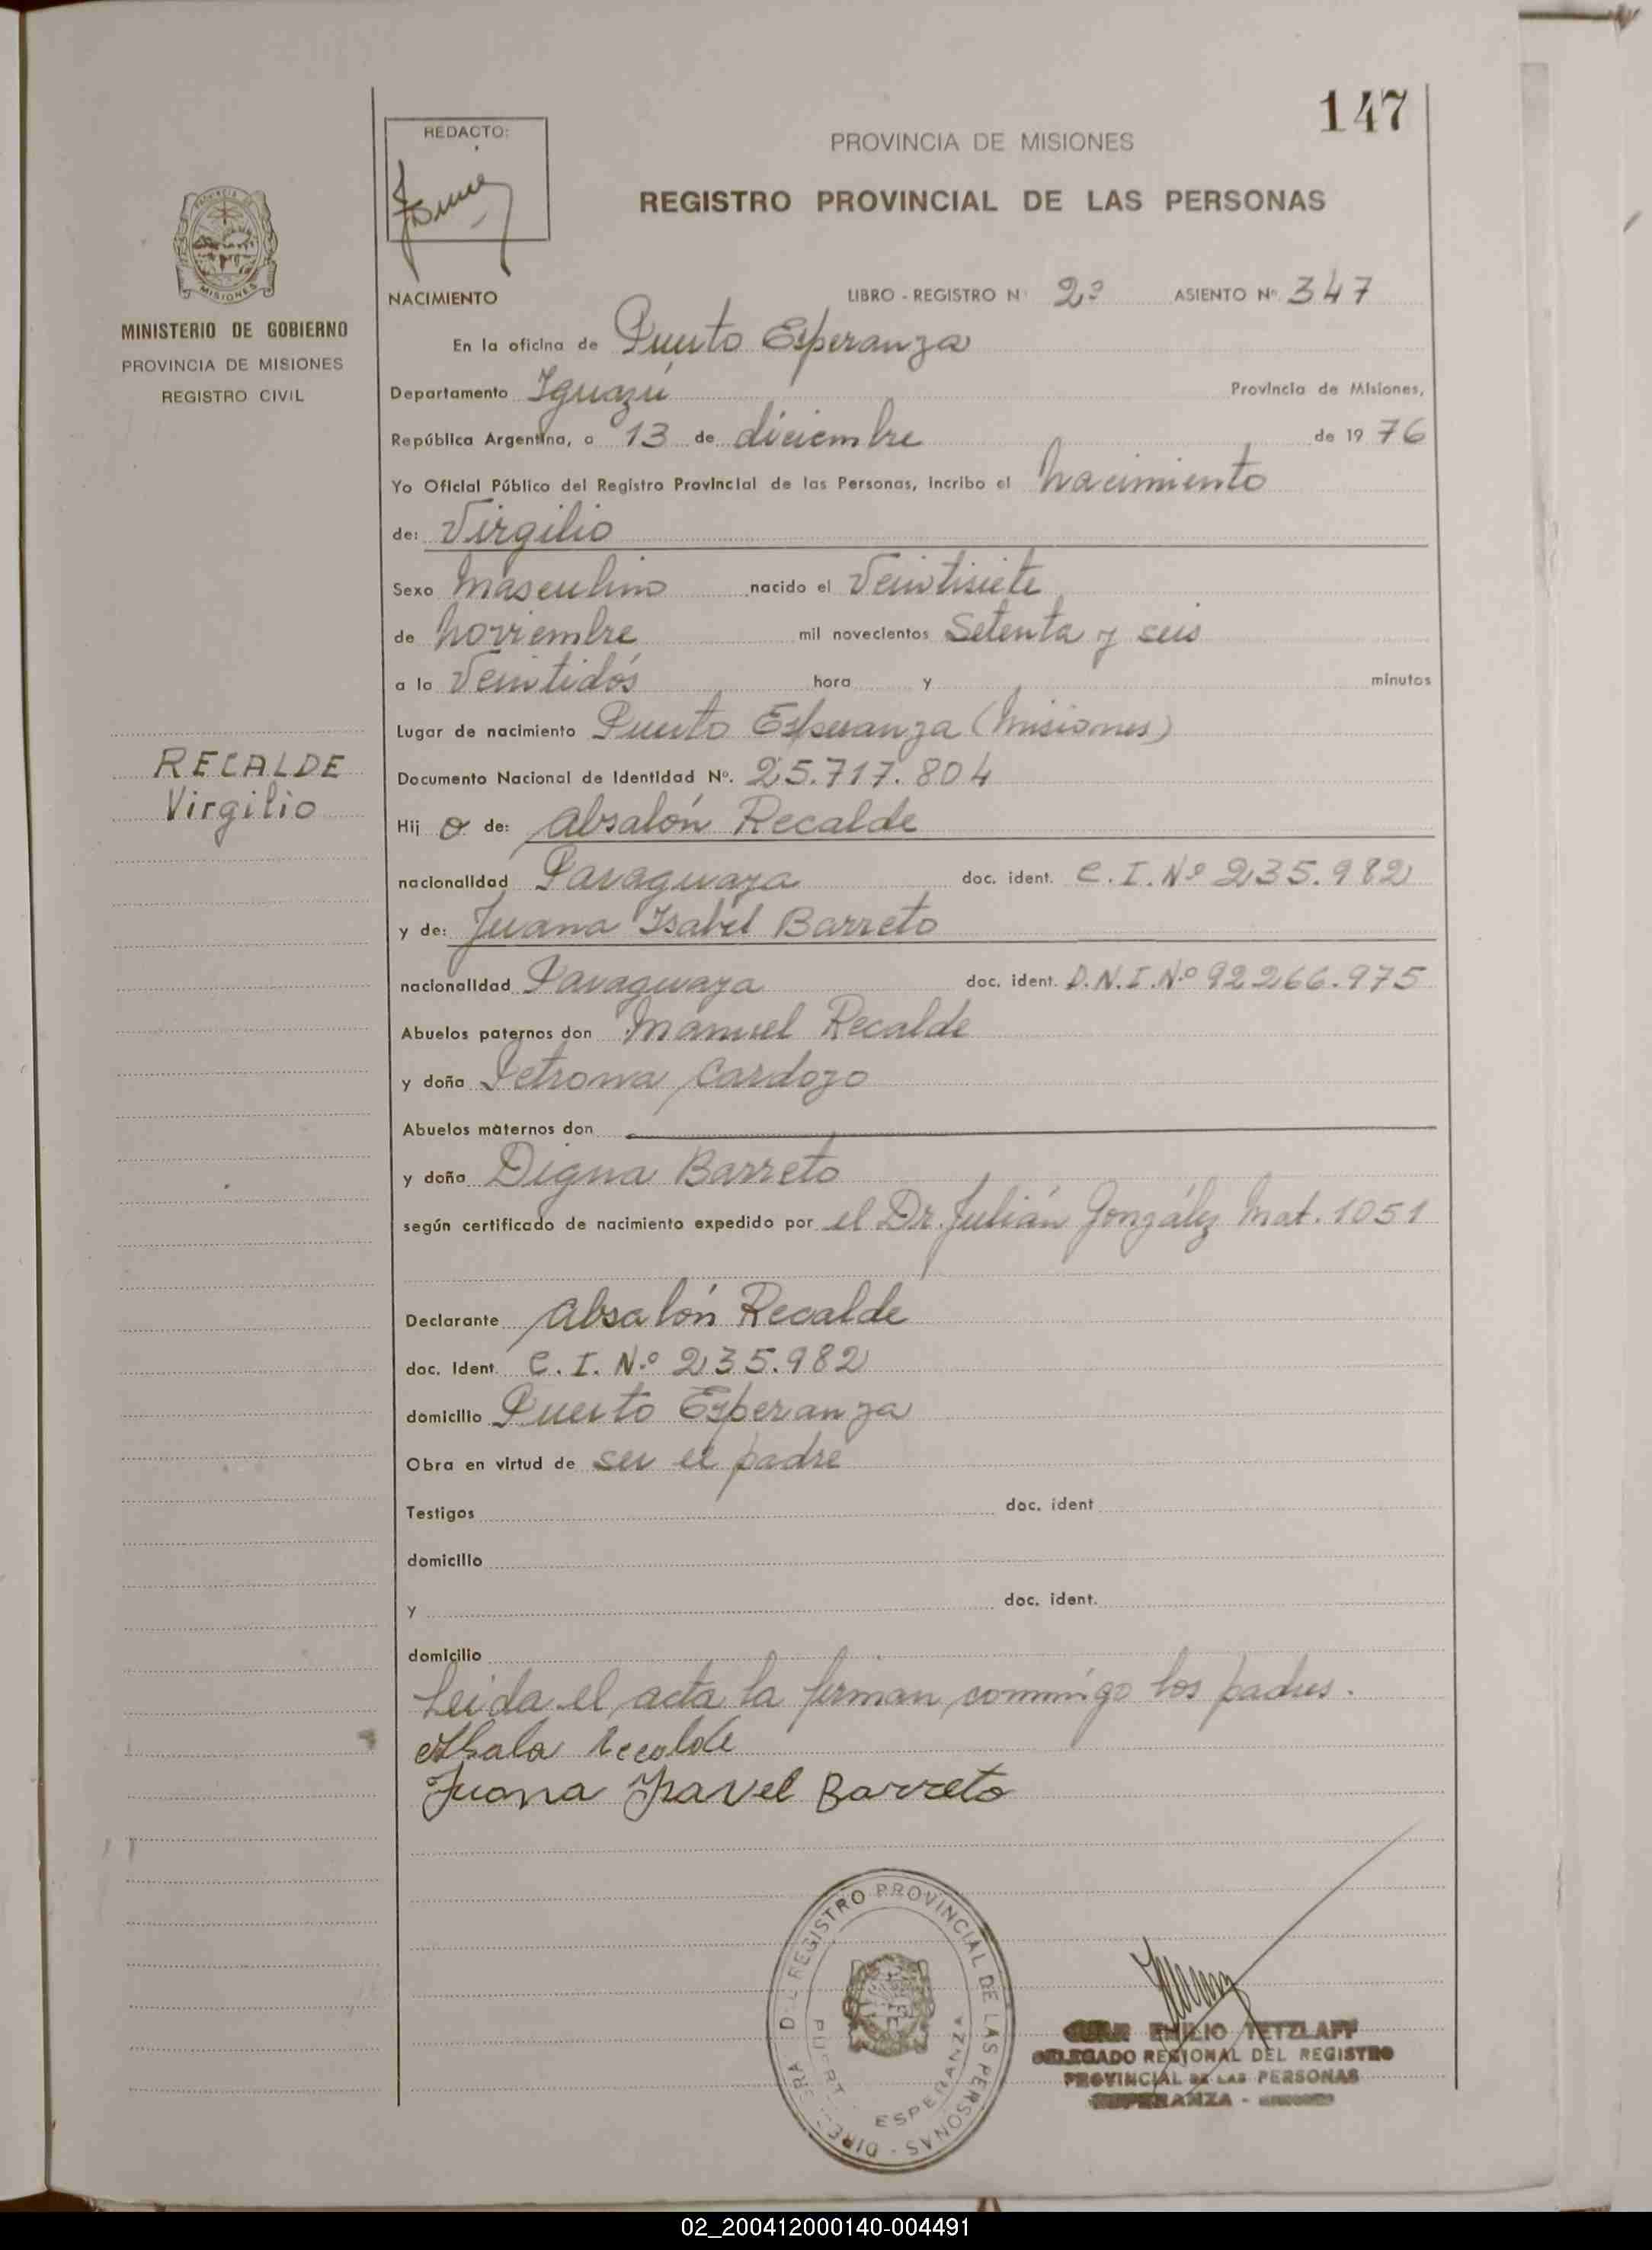 147
REDACTO:
PROVINCIA DE MISIONES
REGISTRO PROVINCIAL DE LAS PERSONAS
MISIONES
MINISTERIO DE GOBIERNO
PROVINCIA DE MISIONES
REGISTRO CIVIL
NACIMIENTO LIBRO - REGISTRO Nº 2º ASIENTO Nº 347
En la oficina de Puerto Esperanza
Departamento Iguazú Provincia de Misiones,
República Argentina, a 13 de diciembre de 19 76
Yo Oficial Público del Registro Provincial de las Personas, incribo el nacimiento
de: Virgilio
Sexo masculino nacido el Veintisiete
de noviembre mil novecientos Setenta y seis
a la Veintidós hora y minutos
Lugar de nacimiento Puerto Esperanza (Misiones)
RECALDE
Virgilio
Documento Nacional de Identidad Nº. 25.717.804
Hij o de: Absalón Recalde
nacionalidad Paraguaya doc. ident. C.I.Nº 235.982
y de: Juana Isabel Barreto
nacionalidad Paraguaya doc. ident. D.N.I.Nº 92266.975
Abuelos paternos don Manuel Recalde
y doña Petrona Cardozo
Abuelos maternos don
y doña Digna Barreto
según certificado de nacimiento expedido por el Dr. Julián González Mat. 1051
Declarante Absalón Recalde
doc. Ident. C.I.Nº 235.982
domicilio Puerto Esperanza
Obra en virtud de ser el padre
Testigos doc. ident
domicilio
y doc. ident.
domicilio
Leida el acta la firman conmigo los padres.
Absala Recalde
Juana Ysavel Barreto
REGISTRO PROVINCIAL DE LAS PERSONAS -
ESPERANZA
EMILIO TETZLAFF
DELEGADO REGIONAL DEL REGISTRO
PROVINCIAL DE LAS PERSONAS
ESPERANZA -
02_200412000140-004491